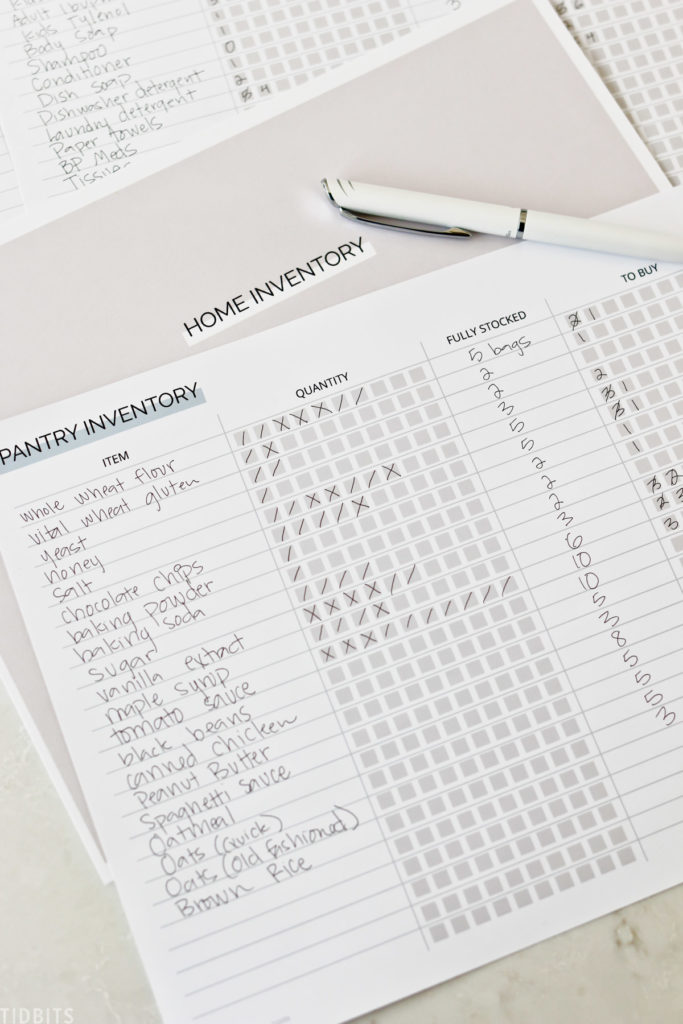 Adult Ibup
Kids Tylenol
Body Soap
Shampoo
Conditioner
Dish Soap
Dishwasher detergent
Laundry detergent
Paper towels
BP Meds
Tissues
HOME INVENTORY
PANTRY INVENTORY
ITEM QUANTITY FULLY STOCKED TO BUY
whole wheat flour 5 bags
vital wheat gluten 2
yeast 2
honey 3
salt 5
chocolate chips 5
baking powder 2
baking soda 2
sugar 3
vanilla extract 6
maple syrup 10
tomato sauce 10
black beans 5
canned chicken 3
Peanut Butter 8
Spaghetti sauce 5
Oatmeal 5
Oats (Quick) 5
Oats (Old Fashioned) 3
Brown Rice
TIDBITS